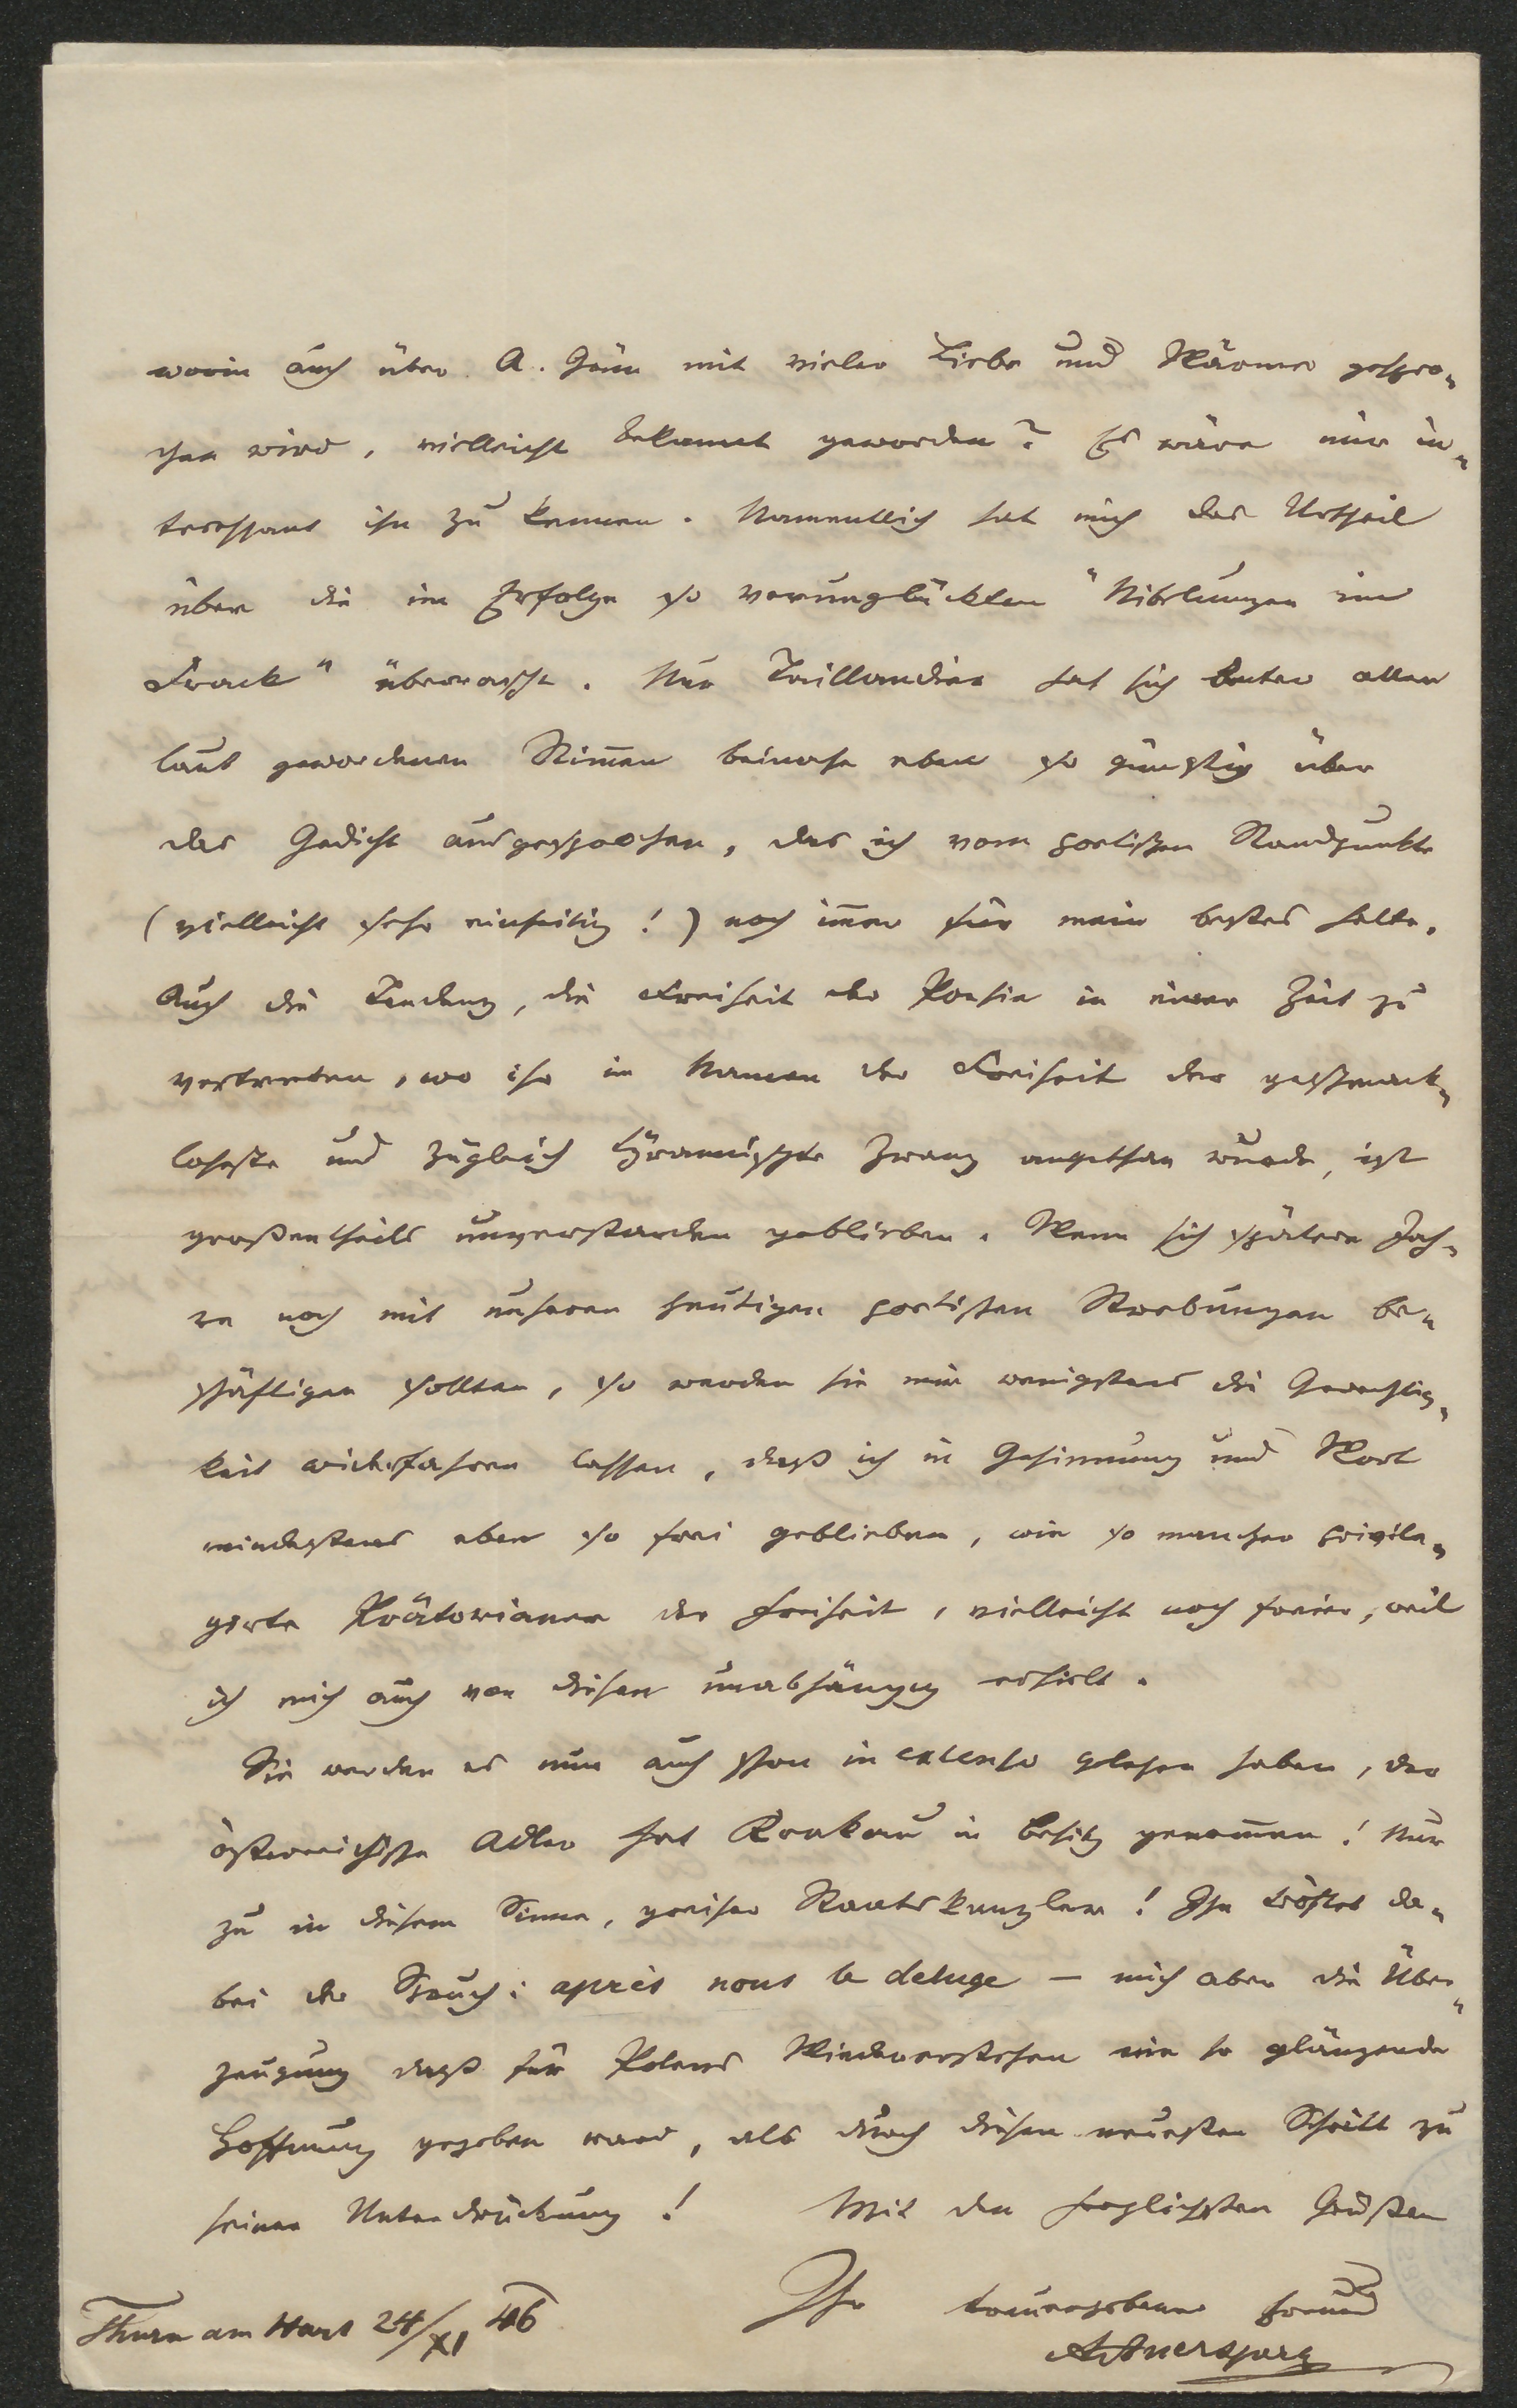 worin auch über A. Grün mit vieler Liebe und Wärme gespro-
chen wird, vielleicht bekannt geworden? Es wäre mir in-
teressant ihn zu kennen. Namentlich hat mich das Urtheil
über die im Erfolge so verunglückten "Nibelungen im
Frack" überrascht. Nur Taillandier hat sich unter allen
laut gewordenen Stim̅en beinahe eben so günstig über
das Gedicht ausgesprochen, das ich vom poetischen Standpunkte
(vielleicht sehr einseitig!) noch im̅er für mein bestes halte.
Auch die Tendenz, die Freiheit der Poesie in einer Zeit zu
vertreten, wo ihr im Namen der Freiheit der geschmack-
loseste und zugleich tyrannischste Zwang angethan wurde, ist
großentheils unverstanden geblieben. Wenn sich spätere Jah-
re noch mit unseren heutigen poetischen Strebungen be-
schäftigen sollten, so werden sie mir wenigstens die Gerechtig-
keit widerfahren lassen, daß ich in Gesinnung und Wort
mindestens eben so frei geblieben, wie so mancher privile-
girte Prätorianer der Freiheit, vielleicht noch freier, weil
ich mich auch von diesen unabhängig erhielt.
Sie werden es nun auch schon in extenso gelesen haben, der
österreichische Adler hat Krakau in Besitz genom̅en! Nur
zu in diesem Sinne, greiser Staatskanzler! Ihn tröstet da-
bei der Spruch: après nous le deluge – mich aber die Über-
zeugung daß für Polens Wiedererstehen nie so glänzende
Hoffnung gegeben ward, als durch diesen neuesten Schritt zu
seiner Unterdrückung! Mit den herzlichsten Grüßen
Ihr treuergebener Freund
Thurn am Hart 24/XI 46
AAuersperg